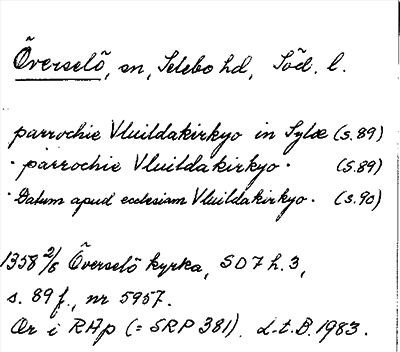 Överselö, sn, Selebo hd, Söd. l.
parrochie Vluildakirkyo in Sylæ (s. 89)
· parrochie Vluildakirkyo · (s. 89)
· Datum apud ecclesiam Vluildakirkyo · (s. 90)
1358 2/5 Överselö kyrka, SD 7 h. 3,
s. 89 f., nr 5957.
Or i RAp (= SRP 381). L.t.B. 1983.